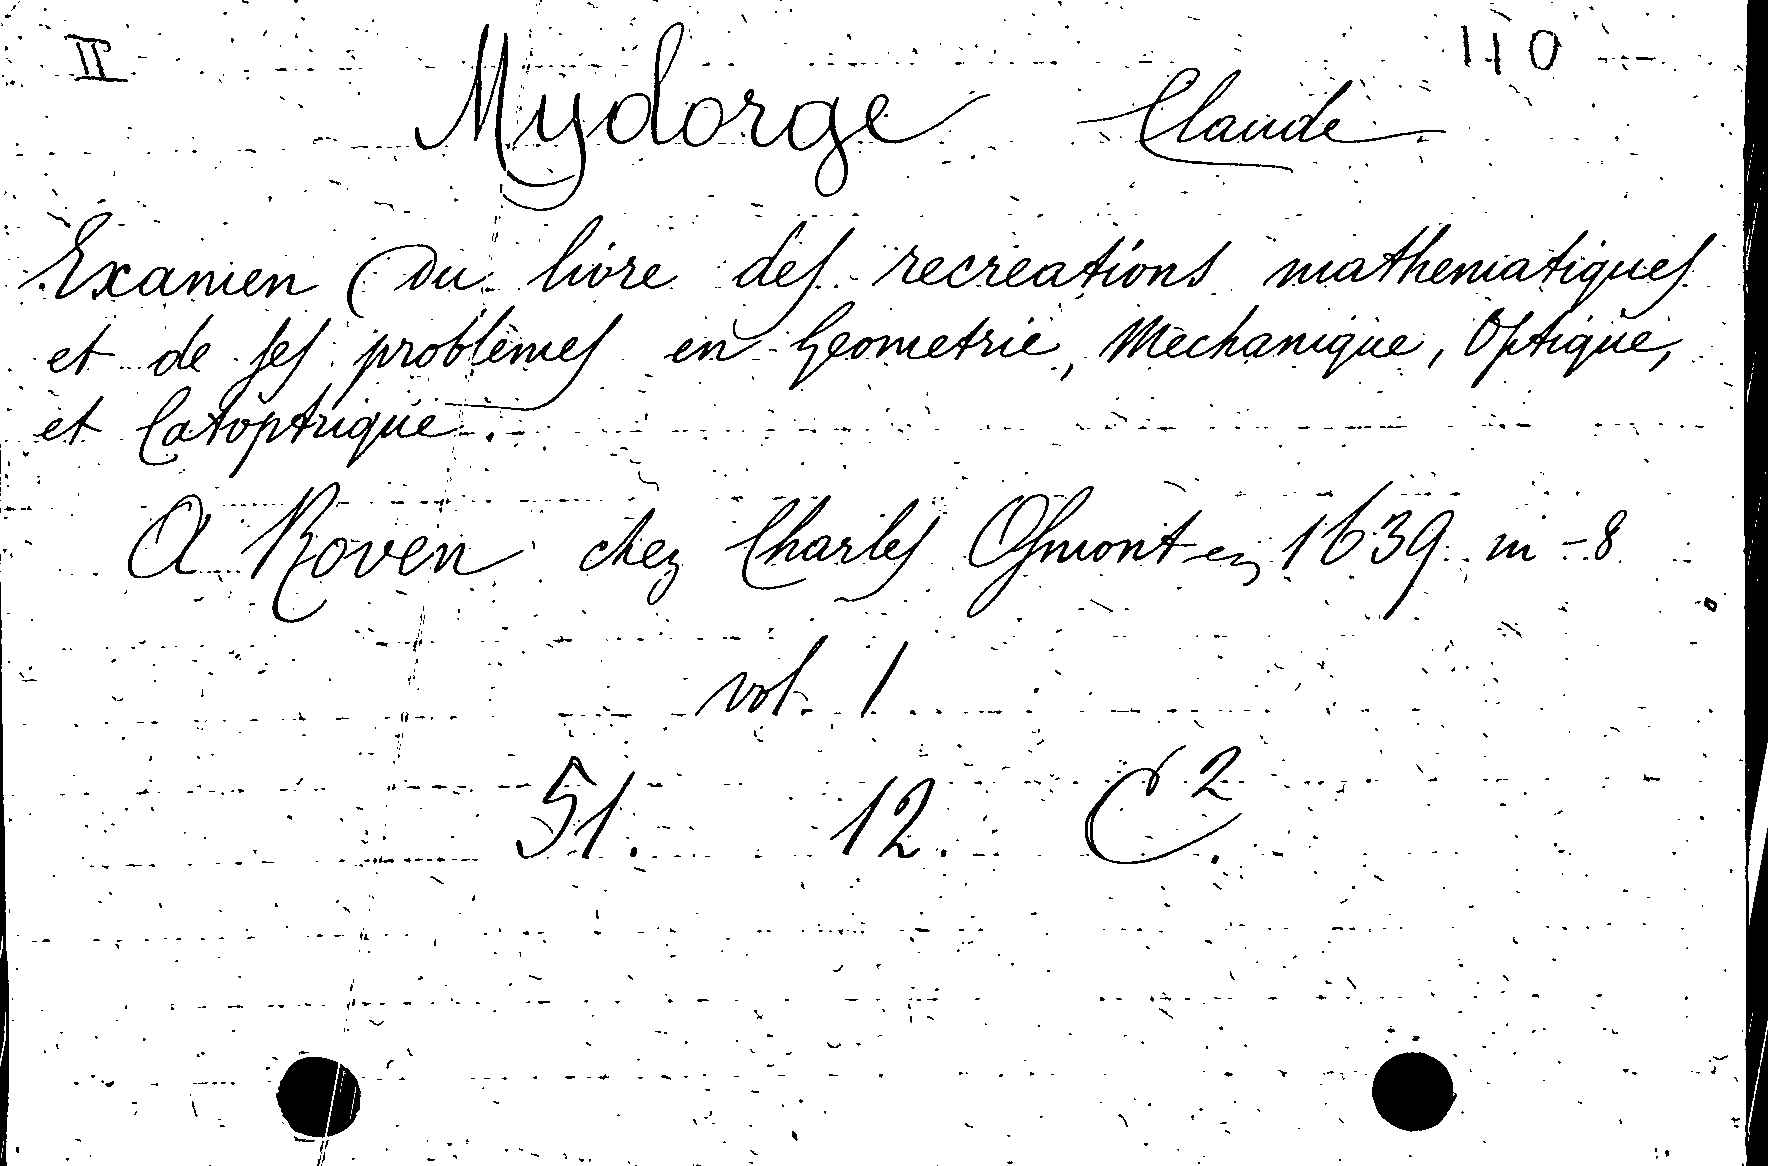 II 110
Mydorge Claude
Examen du livre des recreations mathematiques
et de ses problèmes en Geometrie, Mechanique, Optique,
et Catoptrique.
A Roven chez Charles Osmont en 1639 in-8
vol. 1
51. 12. C².